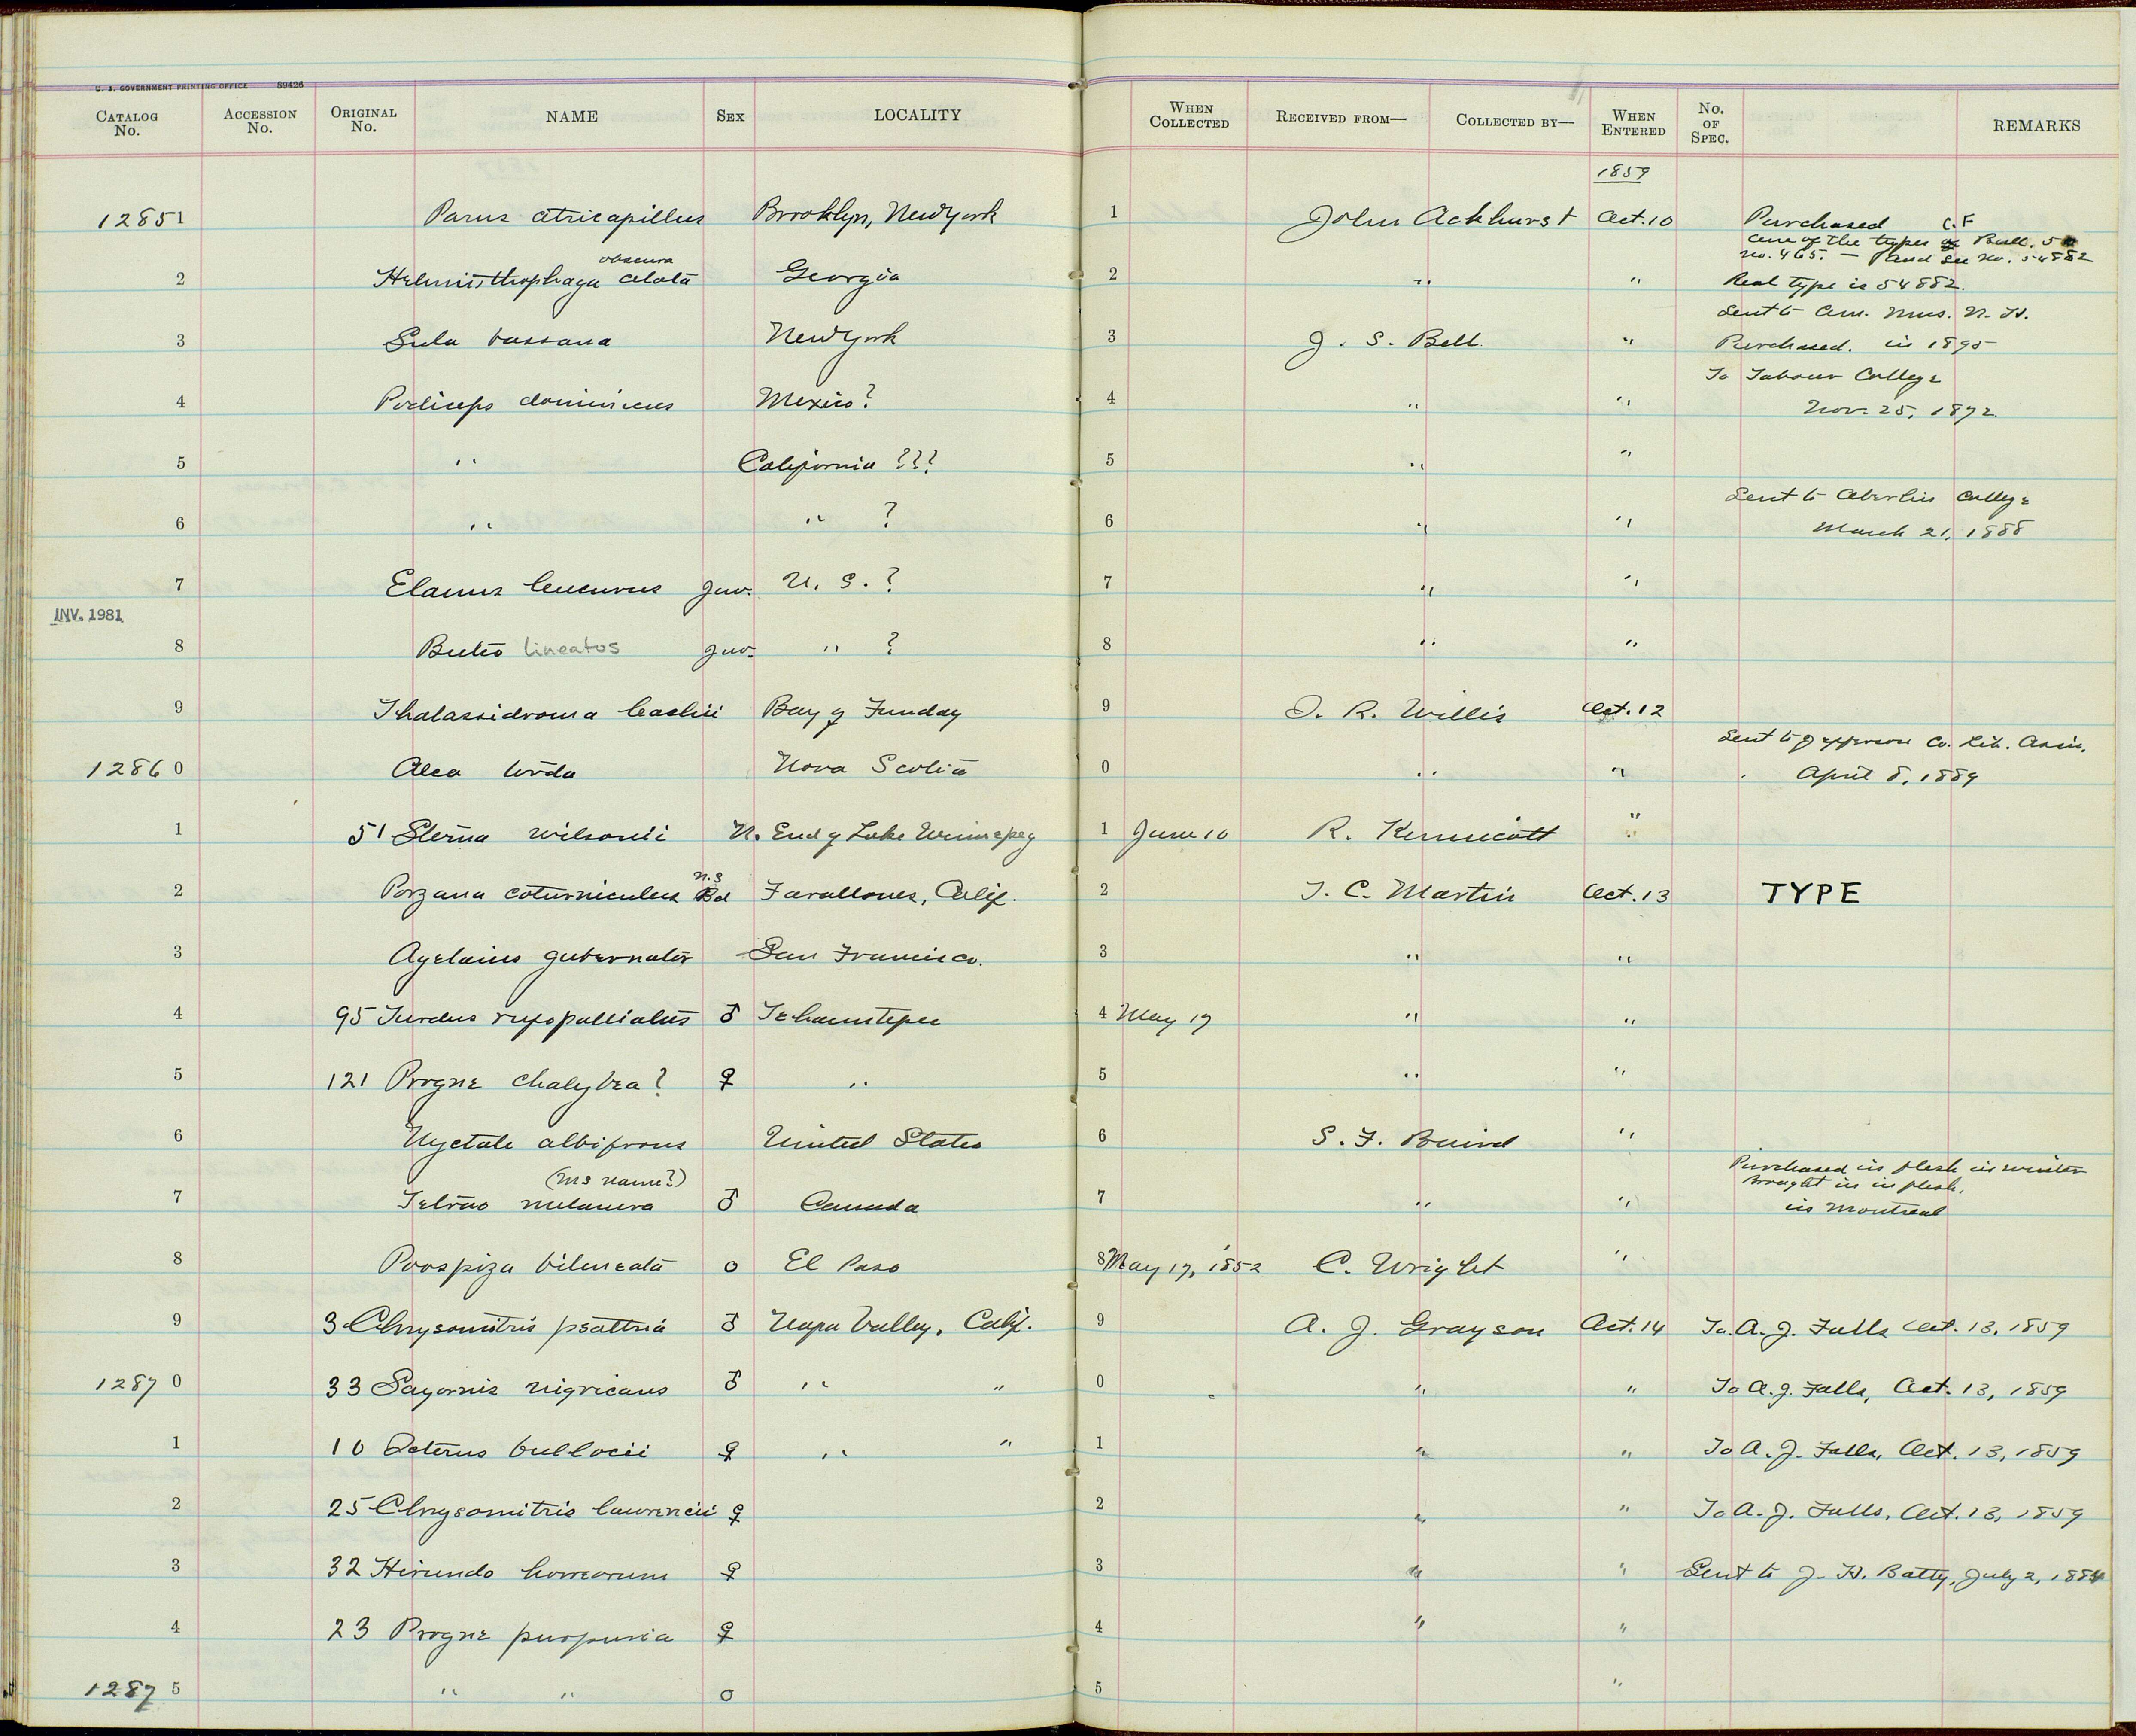 U. S. GOVERNMENT PRINTING OFFICE 59426
CATALOG No. ACCESSION No. ORIGINAL No. NAME SEX LOCALITY WHEN COLLECTED RECEIVED FROM— COLLECTED BY— WHEN ENTERED No. OF SPEC. REMARKS
1859
12851 Parus atricapillus Brooklyn, New York 1 John Ackhurst Oct. 10 Purchased C. F
one of the types of Bull. 5
no. 465. — and see no. 54882
obscura
2 Helminthophaga celata Georgia 2 " " Real type is 54882.
Sent to Am. Mus. N. H.
3 Sula bassana New York 3 J. S. Bell. " Purchased. in 1895
To Tabour College
4 Podiceps dominicus Mexico? 4 " " Nov. 25, 1872
5 " California ??? 5 " "
Sent to Oberlin College
6 " " ? 6 " " March 21, 1888
7 Elanus leucurus juv. U. S. ? 7 " "
INV. 1981
8 Buteo lineatus juv. " ? 8 " "
9 Thalassidroma leachii Bay of Funday 9 J. R. Willis Oct. 12
Sent to Jefferson Co. Lib. Assn.
12860 Alca torda Nova Scotia 0 " " April 8, 1889
1 51 Sterna wilsonii N. End of Lake Winnepeg 1 June 10 R. Kennicott "
n.s
2 Porzana coturniculus Bd Farallones, Calif. 2 T. C. Martin Oct. 13 TYPE
3 Agelaius gubernator San Francisco. 3 " "
4 95 Turdus rufopalliatus ♂ Tehauntepec 4 May 17 " "
5 121 Progne chalybea? ♀ " 5 " "
6 Nyctale albifrons United States 6 S. F. Baird "
Purchased in flesh in winter
(MS name?) brought in in flesh.
7 Tetrao melanura ♂ Canada 7 " " in Montreal
8 Poospiza bilineata o El Paso 8 May 17, 1852 C. Wright "
9 3 Chrysomitris psaltria ♂ Napa Valley, Calif. 9 A. J. Grayson Oct. 14 To A. J. Falls Oct. 13, 1859
12870 33 Sayornis nigricans ♂ " " 0 " " To A. J. Falls, Oct. 13, 1859
1 10 Icterus bullocii ♀ " " 1 " " To A. J. Falls, Oct. 13, 1859
2 25 Chrysomitris lawrencii ♀ 2 " " To A. J. Falls, Oct. 13, 1859
3 32 Hirundo horreorum ♀ 3 " " Sent to J. H. Batty, July 2, 1884
4 23 Progne purpurea ♀ 4 " "
12875 " " o 5 "